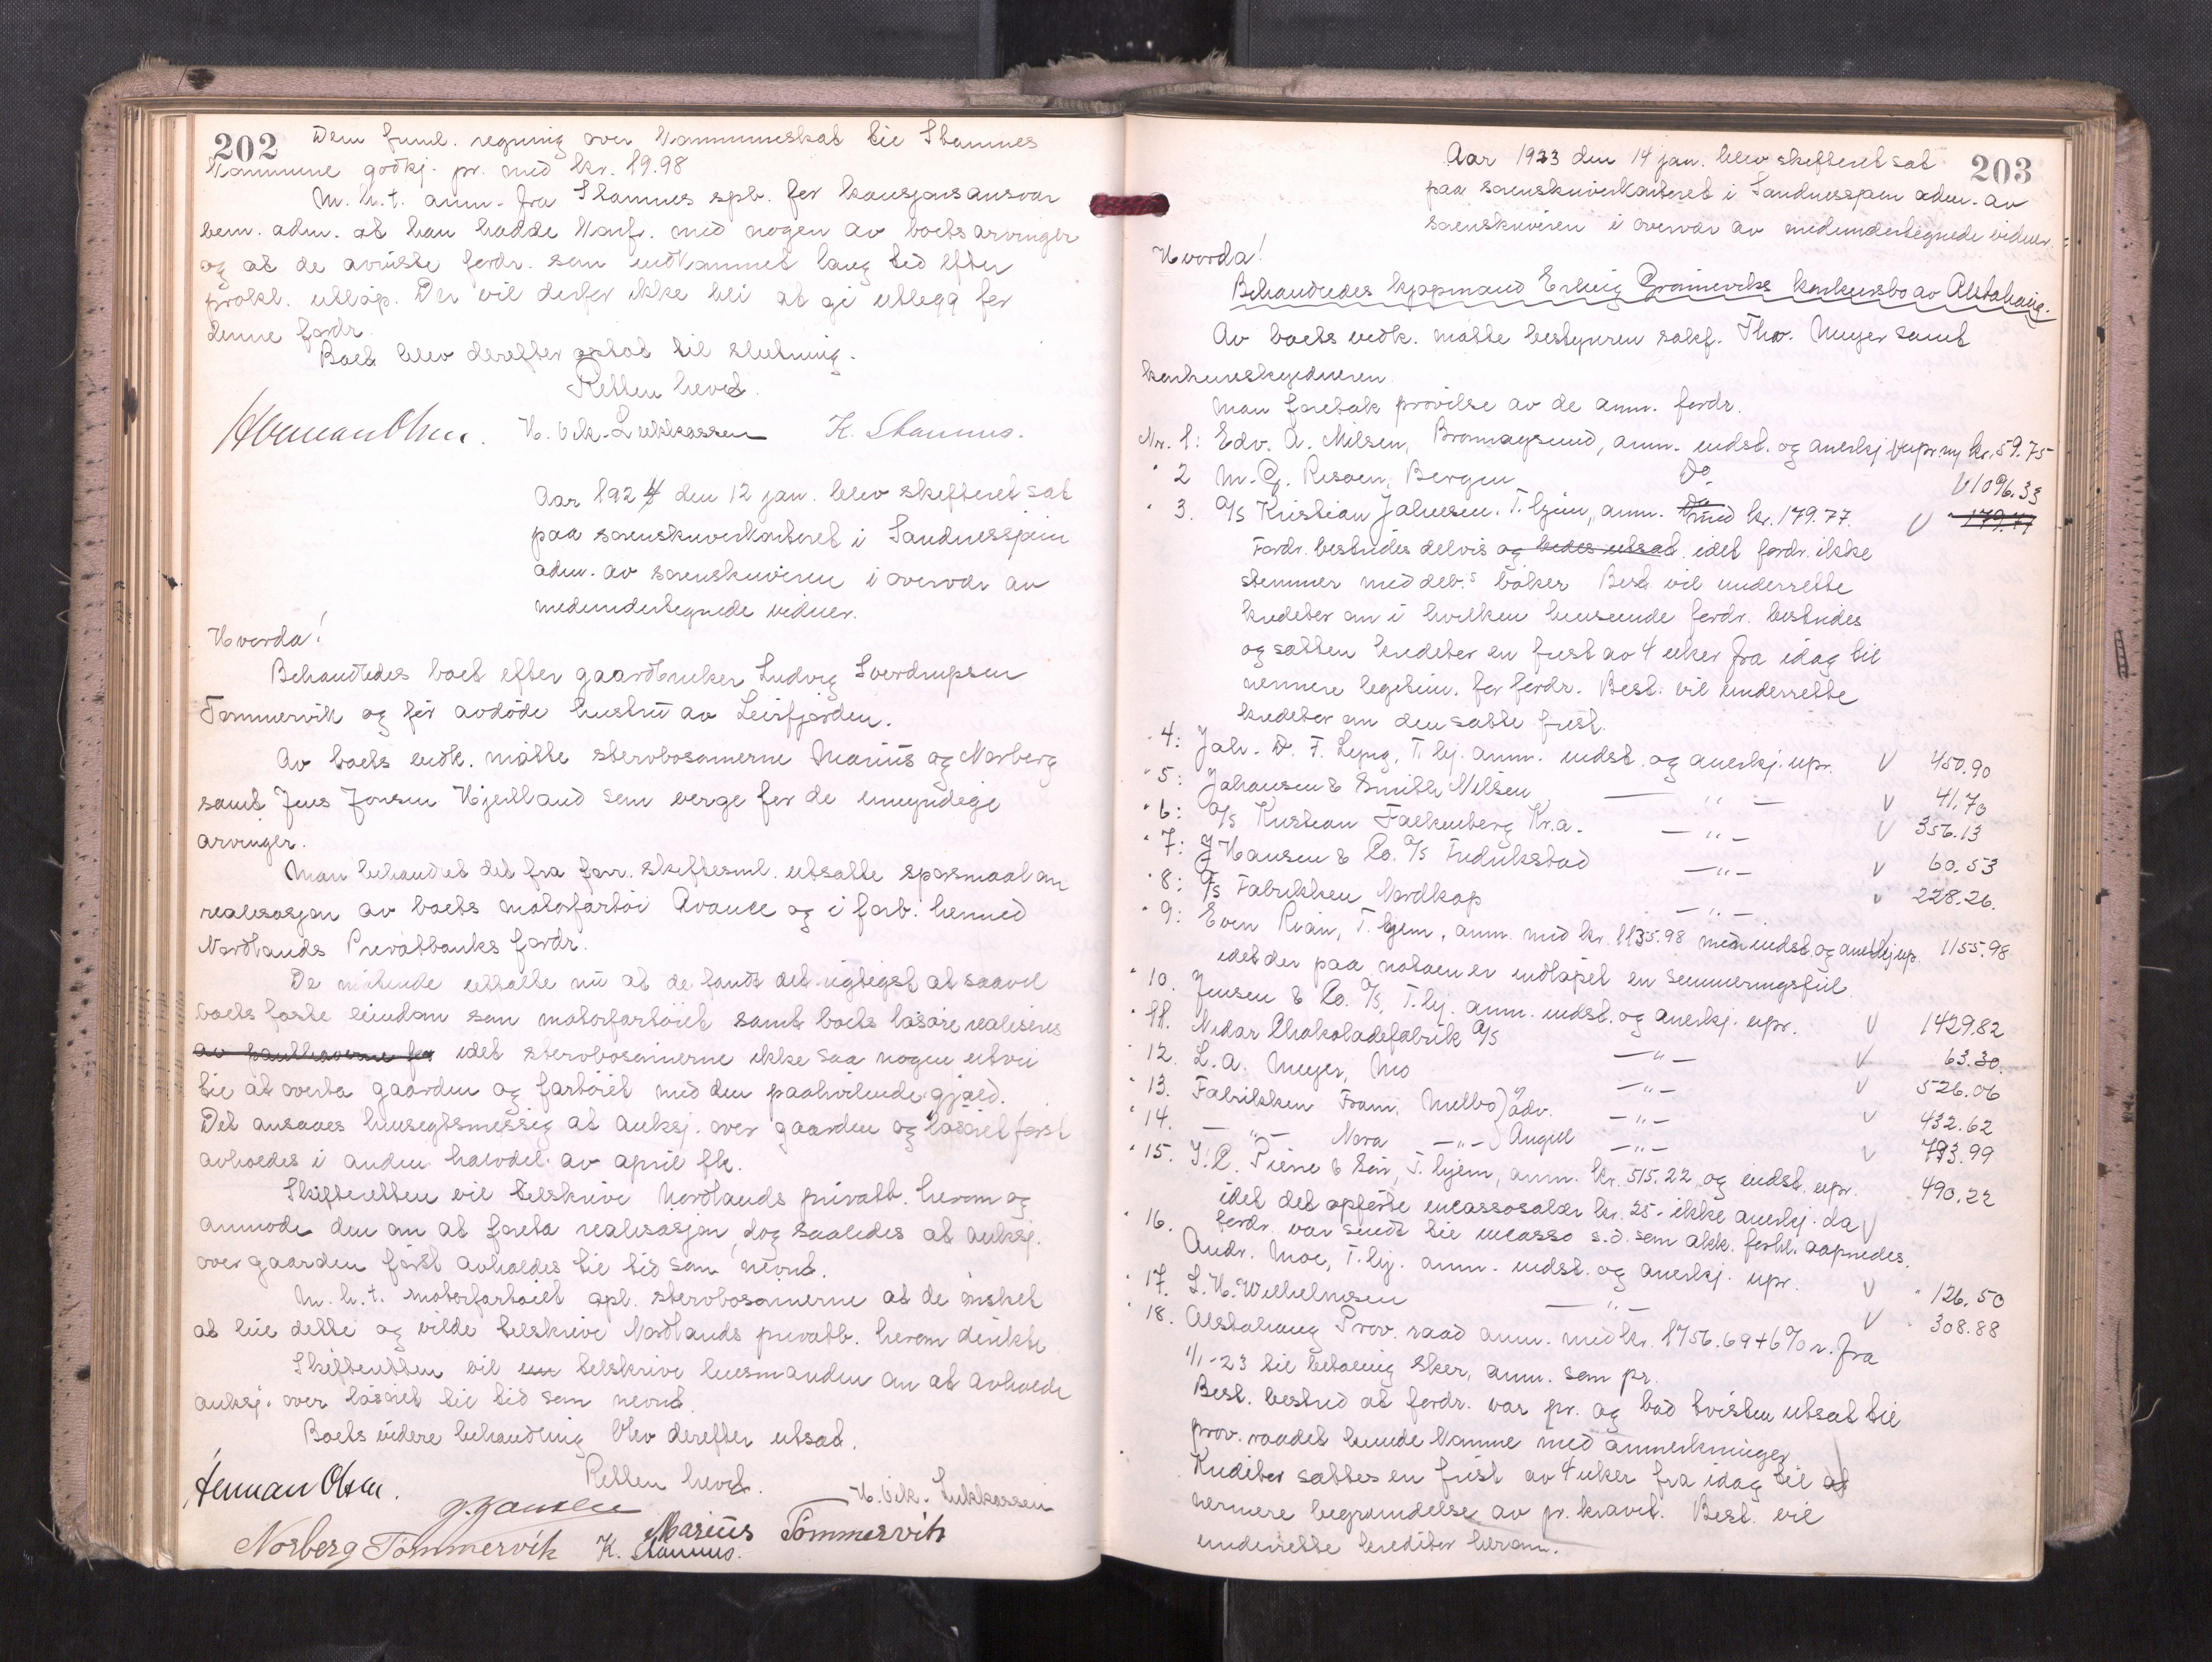 202
Dem freml. regning over Kommuneskat til Stamnes
Kommune godkj. pr. med kr. 19.98
M. h. t. anm. fra Stamnes spb. for kausjonsansvar
bem. adm. at han hadde konf. med nogen av boets arvinger
og at de avviste fordr. som indkommet lang tid efter
prokl. utløp. Der vil derfor ikke bli at gi utlegg for
denne fordr.
Boet blev derefter optat til slutning.
Retten hevet.
Herman Olsen. H. Vik-Lukkassen K. Stamnes.
Aar 1924 den 12 jan. blev skifteret sat
paa sorenskriverkontoret i Sandnessjøen
adm. av sorenskriveren i overvær av
medundertegnede vidner.
Hvorda!
Behandledes boet efter gaardbruker Ludvig Sverdrupsen
Tømmervik og før avdøde hustru av Leirfjorden.
Av boets vedk. møtte stervbosønnerne Marius og Norberg
samt Jens Jonsen Hjelland som verge for de umyndige
arvinger.
Man behandlet det fra forr. skiftesml. utsatte spørsmaal om
realisasjon av boets motorfartøi Avance og i forb. hermed
Nordlands Privatbanks fordr.
De møtende uttalte nu at de fandt det rigtigst at saavel
boets faste eiendom som motorfartøiet samt boets løsøre realiseres
idet stervbosønnerne ikke saa nogen utvei
til at overta gaarden og fartøiet med den paahvilende gjæld.
Det ansaaes hensigtsmessig at auksj. over gaarden og løsøret først
avholdes i anden halvdel av april fk.
Skifteretten vil tilskrive Nordlands privatb. herom og
anmode den om at foreta realisasjon, dog saaledes at auksj.
over gaarden først avholdes til tid som nevnt.
M. h. t. motorfartøiet opl. stervbosønnerne at de ønsket
at leie dette og vilde tilskrive Nordlands privatb. herom direkte.
Skifteretten vil tilskrive lensmanden om at avholde
auksj. over løsøret til tid som nevnt.
Boets videre behandling blev derefter utsat.
Retten hevet.
Herman Olsen. J. Jonsen H. Vik-Lukkassen
Norberg Tømmervik K. Stamnes. Marius Tømmervik
203
Aar 1923 den 14 jan. blev skifteret sat
paa sorenskriverkontoret i Sandnessjøen adm. av
sorenskriveren i overvær av medundertegnede vidner.
Hvorda!
Behandledes kjøpmand Erling Grønneviks konkursbo av Alstahaug.
Av boets vedk. møtte bestyreren sakf. Thv. Meyer samt
konkursskyldneren.
Man foretok prøvelse av de anm. fordr.
Nr. 1: Edv. A. Nilsen, Brønnøysund, anm. indst. og anerkj. upr. kr. 59.75
" 2 M. G. Resoen, Bergen Do V 1096.33
" 3. A/S Kristian Johnsen. T.hjem, anm. med kr. 179.77. V 179.77
Fordr. bestrides delvis og bedes utsat idet fordr. ikke
stemmer med deb.s bøker Best. vil underrette
kreditor om i hvilken henseende fordr. bestrides
og sattes kreditor en frist av 4 uker fra idag til
nermere legitim. for fordr. Best. vil underrette
kreditor om den satte frist.
" 4: Joh. D. F. Lyng, T.hj. anm. indst. og anerkj. upr. V 450.90
" 5: Johansen & Smith Nilsen — " — V 41.70
" 6: A/S Kristian Falkenberg Kr.a. — " — V 356.13
" 7: J Hansen & Co. A/S Fredrikstad — " — V 60.53
" 8: A/S Fabrikken Nordkap — " — V 228.26.
" 9: Even Rian, T.hjem, anm. med kr. 1135.98 men indst. og anerkj. up. 1155.98
idet der paa notaen er indløpet en summeringsfeil.
" 10. Jensen & Co. A/S, T.hj. anm. indst. og anerkj. upr. V 1429.82
" 11. Nidar Chokoladefabrik A/S — " — V 63.30.
" 12. L. A. Meyer, Mo — " — V 526.06
" 13. Fabrikken Fram, Melbo) adv. — " — V 432.62
" 14. — " — Nora — " —) Angell — " — V 793.99
" 15. I. C. Piene & Søn, T.hjem, anm. kr. 515.22 og indst. upr. 490.22
idet det opførte incassosalær kr. 25.- ikke anerkj. da V
fordr. var sendt til incasso s.d. som akk. forhl. aapnedes.
" 16. Andr. Moe, T.hj. anm. indst. og anerkj. upr. V " 126.50
" 17. L. H. Wilhelmsen — " — V " 308.88
" 18. Alstahaug Prov. raad anm. med kr. 1756.69 + 6% r. fra
1/1-23 til betaling sker, anm. som pr.
Best. bestred at fordr. var pr. og bad tvisten utsat til
prov. raadet kunde komme med anmerkninger
Kreditor sattes en frist av 4 uker fra idag til
nermere begrundelse av pr. kravet. Best. vil
underrette kreditor herom.